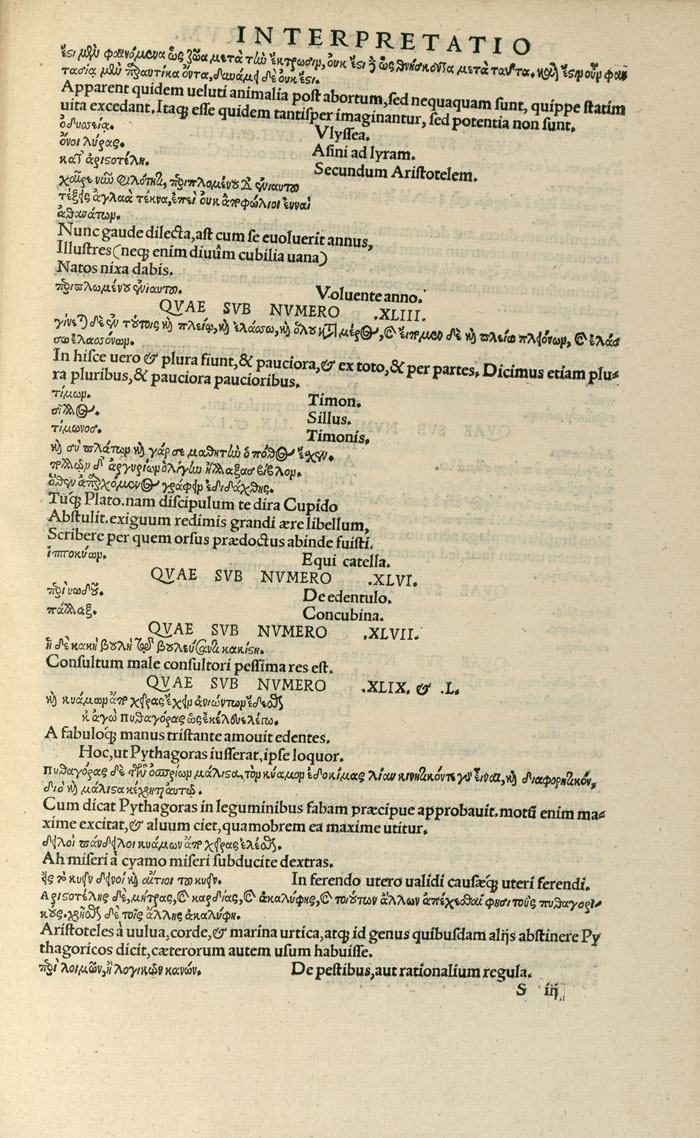 INTERPRETATIO
ἔστι μὲν φαινόμενα ὡς ζῶα μετὰ τὴν ἔκτρωσιν, οὐκ ἔστι δὲ ὡς θνήσκοντα μετὰ ταῦτα. καὶ ἔστι οὖν φαν
τασία μὲν πρὸς αὐτίκα ὄντα, δυνάμει δὲ οὐκ ἔστι.
Apparent quidem ueluti animalia post abortum, sed nequaquam sunt, quippe statim
uita excedant. Itaq; esse quidem tantisper imaginantur, sed potentia non sunt.
ὀδυοσεία. Vlyssea.
ὄνοι λύρας. Asini ad lyram.
κατ' ἀριστοτέλη. Secundum Aristotelem.
χαῖρε γυνὴ φιλότητι, περιπλομένου δ' ἐνιαυτοῦ
τέξεις ἀγλαὰ τέκνα, ἐπεὶ οὐκ ἀποφώλιοι εὐναὶ
ἀθανάτων.
Nunc gaude dilecta, ast cum se euoluerit annus,
Illustres (neq; enim diuûm cubilia uana)
Natos nixa dabis.
περιπλομένου ἐνιαυτοῦ. Voluente anno.
QVAE SVB NVMERO .XLIII.
γίνεται δὲ ἐν τούτοις καὶ πλείω, καὶ ἐλάσσω, καὶ ὅλου καὶ μέρος, καὶ εἴπομεν δὲ καὶ πλείω πλειόνων, καὶ ἐλάσ
σω ἐλασσόνων.
In hisce uero & plura fiunt, & pauciora, & ex toto, & per partes. Dicimus etiam plu-
ra pluribus, & pauciora paucioribus.
τίμων. Timon.
σίλλος. Sillus.
τίμωνοσ. Timonis.
καὶ σὺ πλάτων καὶ γάρ σε μαθητὴν ὁ πόθος ἔσχεν.
πολλῶν δ' ἀργυρίων ὀλίγην ἠλλάξασ βίβλον.
ὅθεν ἀπερχόμενος γράφειν ἐδιδάχθης.
Tuq; Plato. nam discipulum te dira Cupido
Abstulit. exiguum redimis grandi ære libellum,
Scribere per quem orsus prædoctus abinde fuisti.
ἱπποκύων. Equi catella.
QVAE SVB NVMERO .XLVI.
περὶ νωδοῦ. De edentulo.
πάλλαξ. Concubina.
QVAE SVB NVMERO .XLVII.
ἡ δὲ κακὴ βουλὴ τῷ βουλεύσαντι κακίστη.
Consultum male consultori pessima res est.
QVAE SVB NVMERO .XLIX. & .L.
καὶ κυάμων ἄπο χεῖρας ἔχειν ἀνιώντων ἐδεσθαι
κἀγὼ πυθαγόρας ὡς ἐκέλευε λέγω.
A fabuloq; manus tristante amouit edentes.
Hoc, ut Pythagoras iusserat, ipse loquor.
πυθαγόρας δὲ τῶν ὀσπρίων μάλιστα τὸν κύαμον ἐδοκίμασε λίαν κινητικόν τε γὰρ εἶναι, καὶ διαφορητικόν,
διὸ καὶ μάλιστα κέχρηται αὐτῷ.
Cum dicat Pythagoras in leguminibus fabam præcipue approbauit. motũ enim ma-
xime excitat, & aluum ciet, quamobrem ea maxime utitur.
δειλοὶ πάνδειλοι κυάμων ἄπο χεῖρας ἔλεσθε.
Ah miseri à cyamo miseri subducite dextras.
εἰς τὸ κυεῖν δεινοὶ καὶ αἴτιοι τοῦ κυεῖν. In ferendo utero ualidi causæq; uteri ferendi.
Ἀριστοτέλης δὲ, μήτρας, καὶ καρδίας, καὶ ἀκαλύφης, καὶ τοιούτων ἄλλων ἀπέχεσθαί φησι τοὺς πυθαγορι-
κούς. χρῆσθαι δὲ τοῖς ἄλλης ἀκαλύφη.
Aristoteles à uulua, corde, & marina urtica, atq; id genus quibusdam alijs abstinere Py
thagoricos dicit, cæterorum autem usum habuisse.
περὶ λοιμῶν, ἢ λογικῶν κανών. De pestibus, aut rationalium regula.
S iij